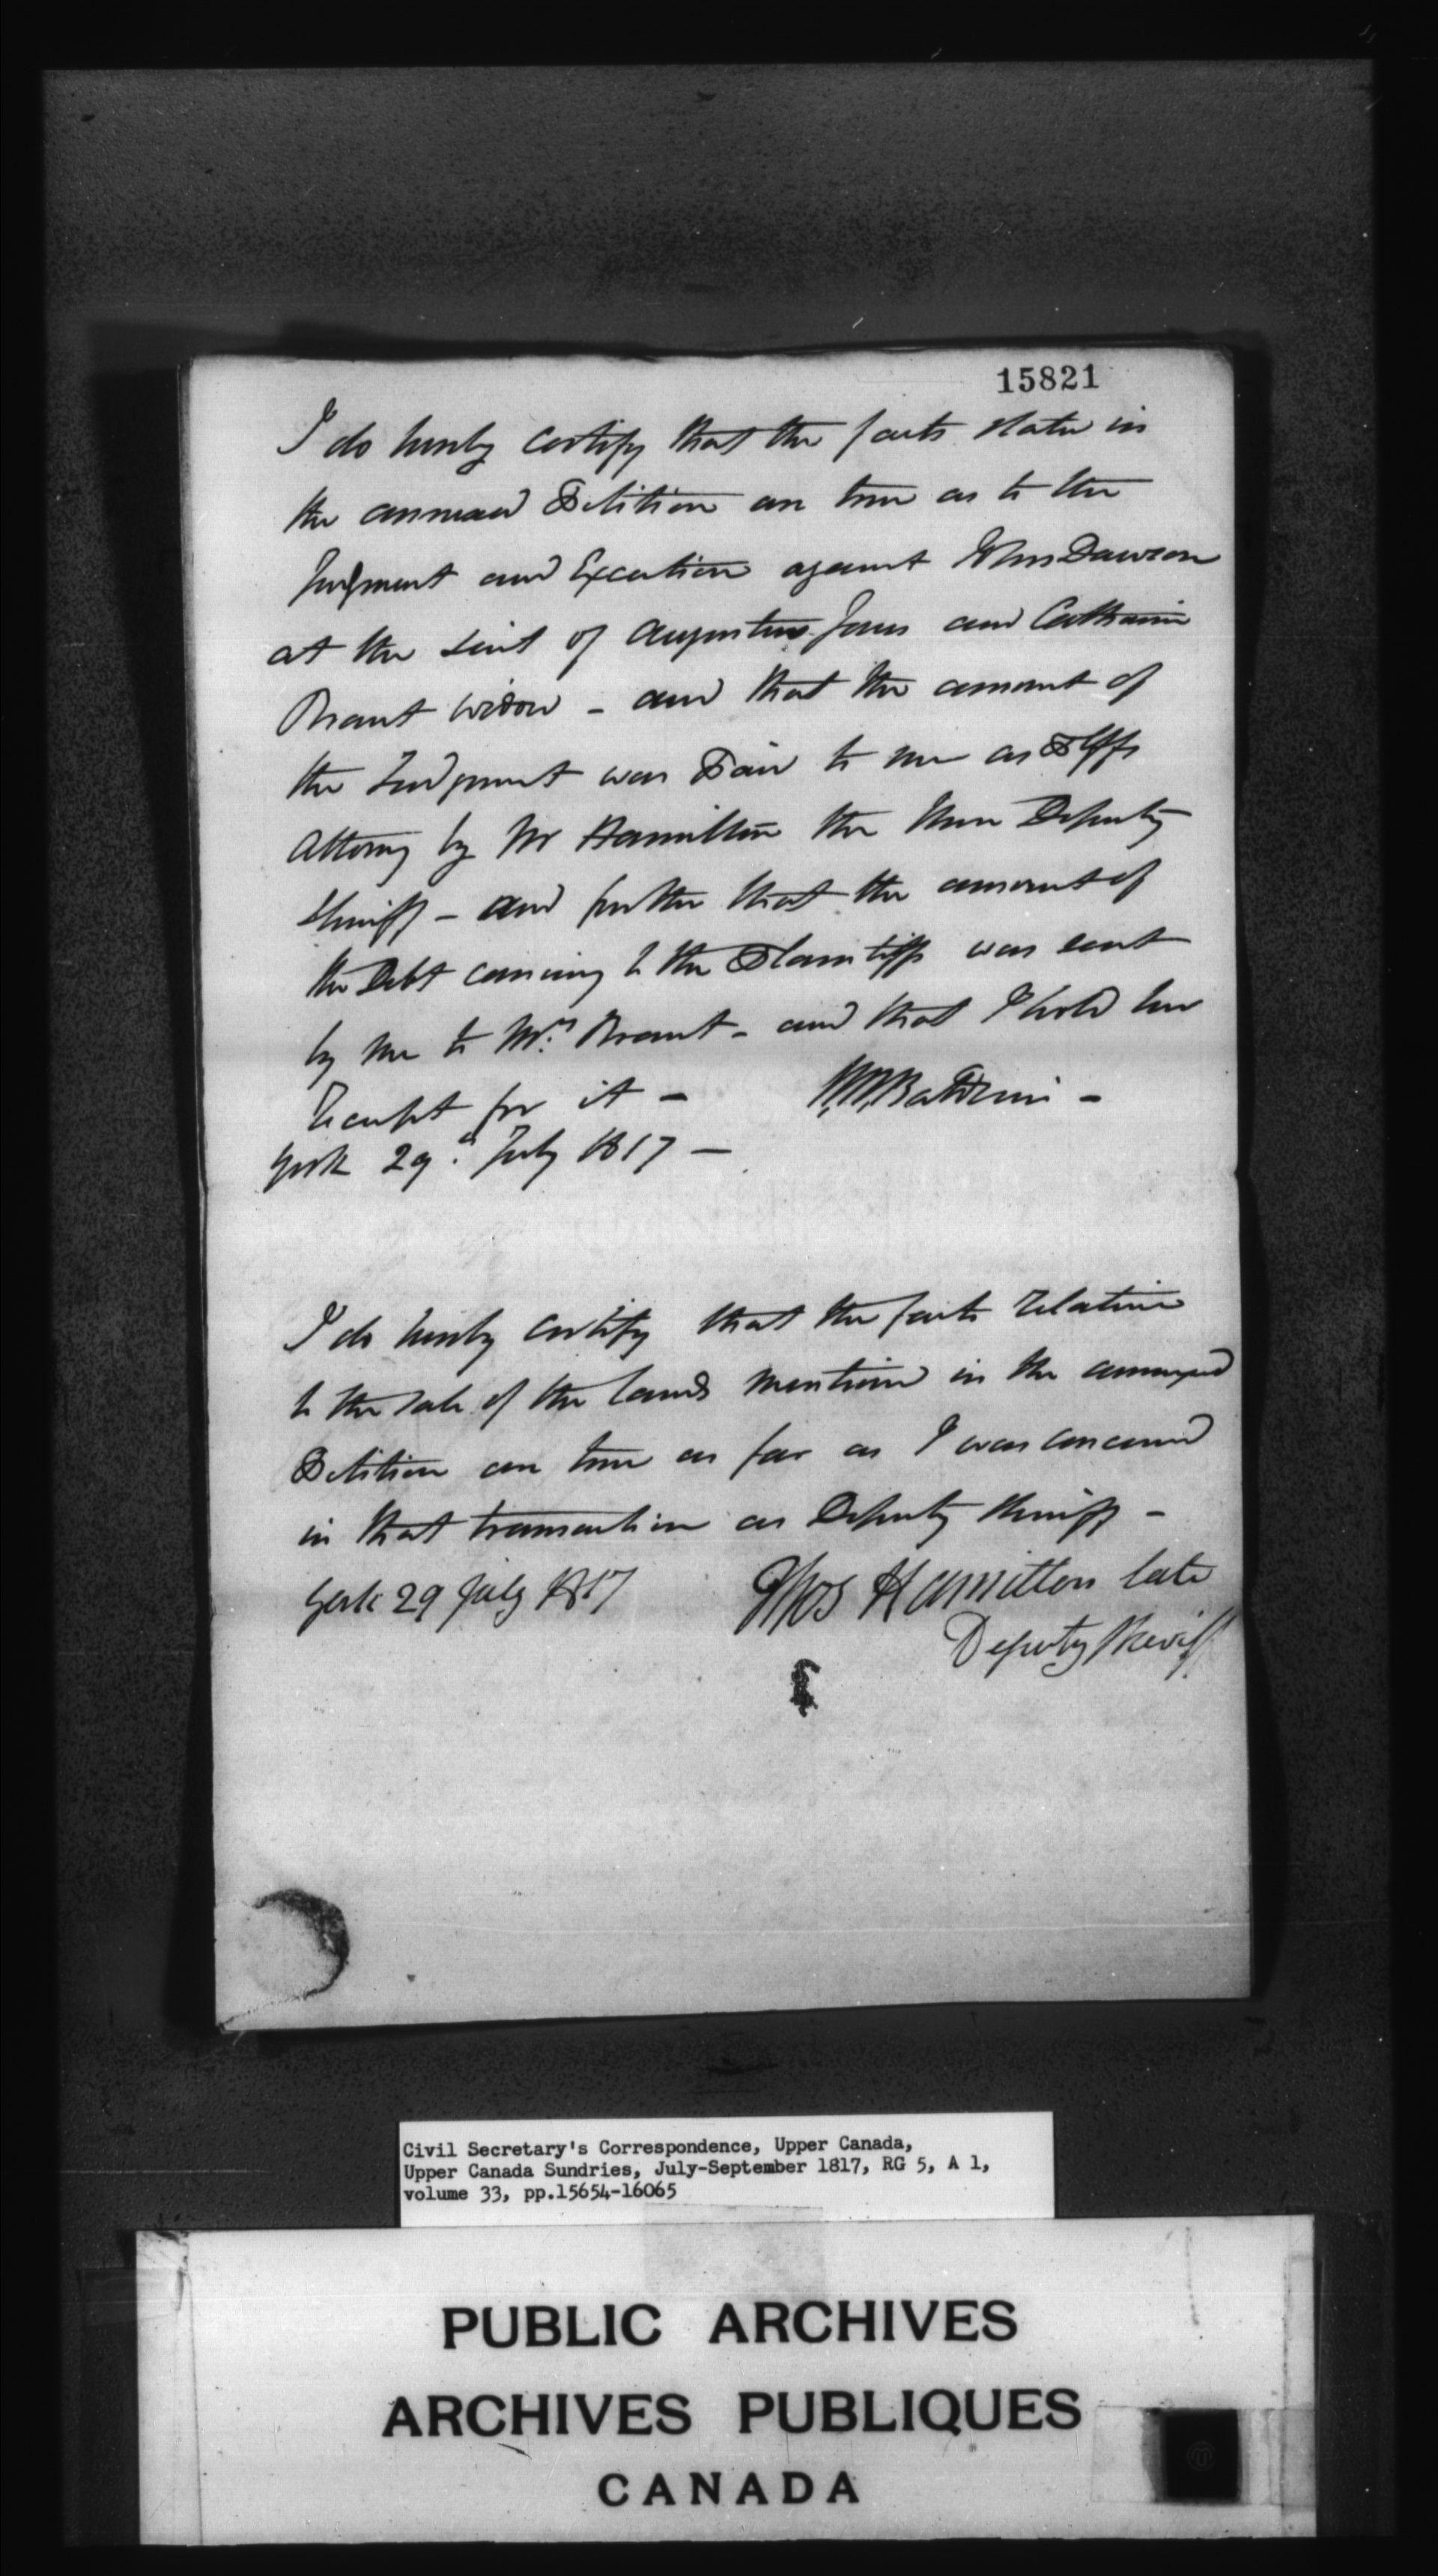 15821
I do hereby certify that the facts stated in
the annexed Petition are true as to the
Judgment and Execution against John Dawson
at the suit of Augustus Jones and Catharine
Brant widow - and that the amount of
the Judgment was Paid to me as Plffs
Attorney by Mr Hamilton the then Deputy
Sheriff - and further that the amount of
the Debt coming to the Plaintiffs was sent
by me to Mrs. Brant - and that I hold her
Receipt for it - W.W. Baldwin -
York 29th July 1817 -
I do hereby certify that the facts relative
to the sale of the lands mentioned in the annexed
Petition are true as far as I was concerned
in that transaction as Deputy Sheriff -
York 29 July 1817 Thos Hamilton late
Deputy Sheriff
Civil Secretary's Correspondence, Upper Canada,
Upper Canada Sundries, July-September 1817, RG 5, A 1,
volume 33, pp.15654-16065
PUBLIC ARCHIVES
ARCHIVES PUBLIQUES
CANADA